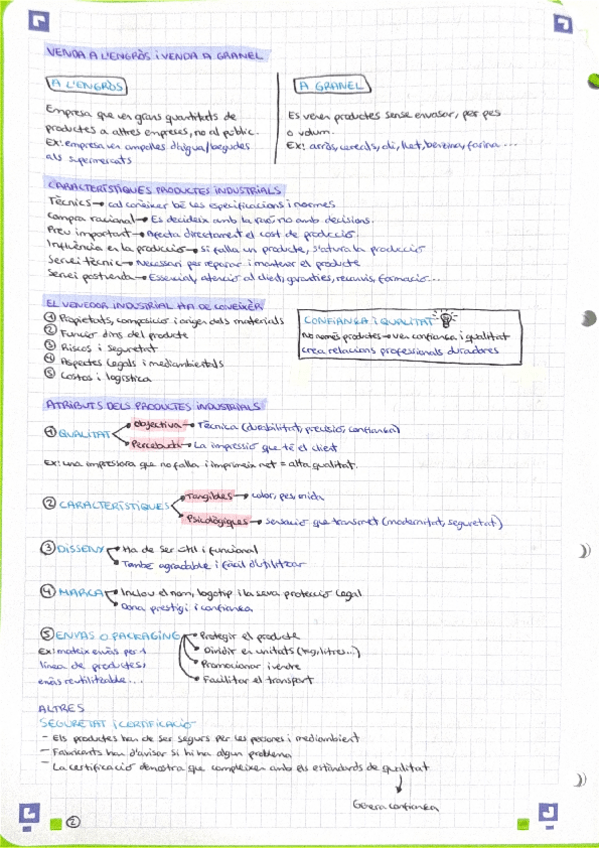 VENDA A L'ENGRÒS i VENDA A GRANEL
A L'ENGRÒS
Empresa que ven grans quantitats de
productes a altres empreses, no al públic.
Ex: empresa ven ampolles d'aigua/begudes
als supermercats
A GRANEL
Es venen productes sense envasar, per pes
o volum.
Ex: arròs, cereals, oli, llet, benzina, farina...
CARACTERÍSTIQUES PRODUCTES INDUSTRIALS
Tècnics → cal conèixer bé les especificacions i normes
Compra racional → Es decideix amb la raó no amb decisions.
Preu important → Afecta directament el cost de producció.
Influència en la producció → si falla un producte, s'atura la producció
Servei tècnic → Necessari per reparar i mantenir el producte
Servei postvenda → Essencial, atenció al client, garanties, recanvis, formació...
EL VENEDOR INDUSTRIAL HA DE CONEIXÈR
① Propietats, composició i origen dels materials
② Funció dins del producte
③ Riscos i seguretat
④ Aspectes legals i mediambientals
⑤ Costos i logística
CONFIANÇA i QUALITAT
No només productes → ven confiança i qualitat
crea relacions professionals duradores
ATRIBUTS DELS PRODUCTES INDUSTRIALS
① QUALITAT
Objectiva → Tècnica (durabilitat, precisió, confiança)
Percebuda → La impressió que té el client
Ex: una impressora que no falla i imprimeix net = alta qualitat.
② CARACTERÍSTIQUES
Tangibles → color, pes, mida
Psicològiques → sensació que transmet (modernitat, seguretat)
③ DISSENY
Ha de ser útil i funcional
També agradable i fàcil d'utilitzar
④ MARCA
Inclou el nom, logotip i la seva protecció legal
Dona prestigi i confiança
⑤ ENVÀS O PACKAGING
Ex: mateix envàs per 1
línea de productes,
envàs reutilitzable...
Protegir el producte
Dividir en unitats (kg, litres...)
Promocionar i vendre
Facilitar el transport
ALTRES
SEGURETAT i CERTIFICACIÓ
- Els productes han de ser segurs per les persones i mediambient
- Fabricants han d'avisar si hi ha algun problema
- La certificació demostra que compleixen amb els estàndards de qualitat
Genera confiança
②